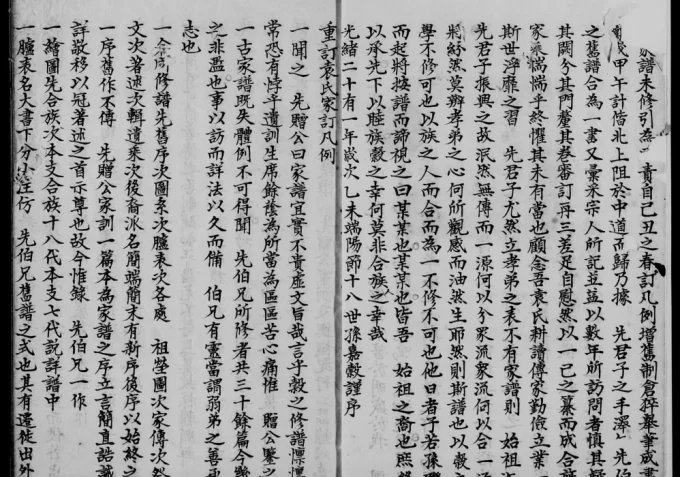 家譜未修引為 責自己丑之春訂凡例增舊制倉猝舉筆成書
甲午計偕北上阻於中道而歸乃據 先君子之手澤 先伯
之舊譜合為一書又彙采宗人所記並益以數年所訪問者慎其疑
其闕分其門釐其卷審訂再三差足自慰然以一己之纂而成合
家乘惴惴乎終懼其未有當也顧念吾袁氏耕讀傳家勤儉立業
斯世淳靡之習 先君子尤然立孝弟之表不有家譜則 始祖
先君子振興之故泯然無傳而一源何以分眾流眾流何以合一
將紛然莫辨孝弟之心何所觀感而油然生耶然則斯譜也以穀
學不修可也以族之人而合而為一不修不可也他日者子若孫
而起將按譜而諦視之曰某某也某某也皆吾 始祖之裔也庶
以承先下以睦族穀之幸何莫非合族之幸哉
光緒二十有一年歲次乙未端陽節十八世孫嘉穀謹序
重訂袁氏家訂凡例
一聞之 先贈公曰家譜宜實不貴虛文旨哉言乎穀之修譜懍懍
常恐有悖乎遺訓生席餘蔭為所當為區區苦心痛惟 贈公鑒之
一古家譜既失體例不可得聞 先伯兄所修者共三十餘篇今
之非濫也事以訪而詳法以久而備 伯兄有靈當謂弱弟之善
志也
一余修譜先舊序次圖系次臚表次各處 祖塋圖次家傳次
文次著述次輯遺乘次後裔派名簡端簡末有新序後序以始終之
一序舊作不傳 先贈公家訓一篇本為家譜之序立言簡直誥誡
詳敬移以冠著述之首示尊也故今惟錄 先伯兄一作
一繪圖先合族次本支合族十八代本支七代說詳譜中
一臚表名大書下分小注仿 先伯兄舊譜之式也其有遷徙出外